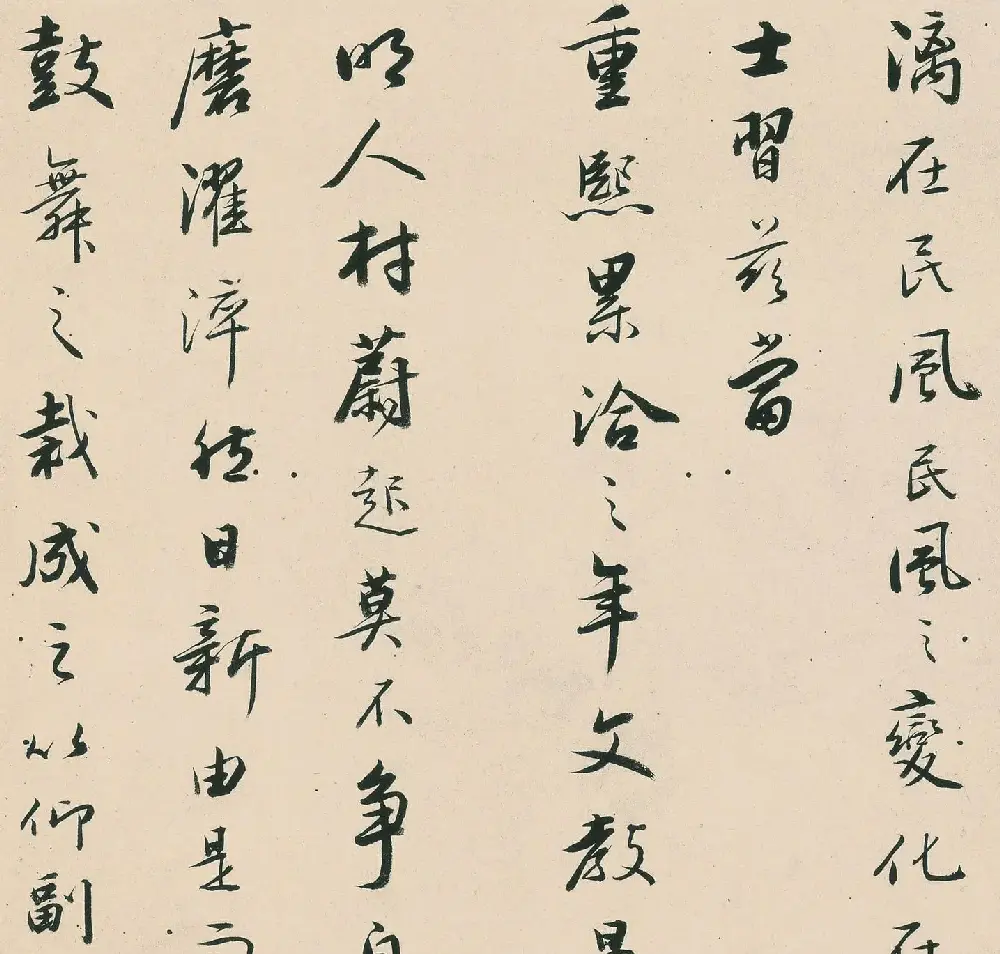 漓在民風民風之變化在
士習茲當
重熙累洽之年文教
明人材蔚起莫不爭自
磨濯淬然日新由是而
鼓舞之栽成之以仰副